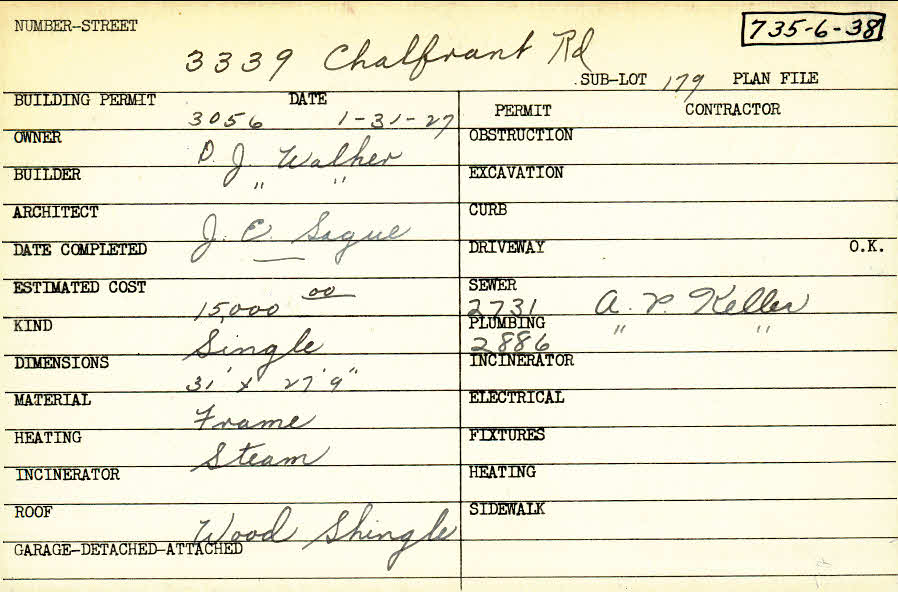 NUMBER-STREET
735-6-38
3339 Chalfrant Rd
SUB-LOT 179 PLAN FILE
BUILDING PERMIT DATE
3056 1-31-27
PERMIT CONTRACTOR
OWNER
D. J. Walher
OBSTRUCTION
BUILDER
" "
EXCAVATION
ARCHITECT
J. E. Sague
CURB
DATE COMPLETED
—
DRIVEWAY O.K.
ESTIMATED COST
15,000 00
SEWER
2731 A. P. Keller
KIND
Single
PLUMBING
2886 " "
DIMENSIONS
31' x 27' 9"
INCINERATOR
MATERIAL
Frame
ELECTRICAL
HEATING
Steam
FIXTURES
INCINERATOR
HEATING
ROOF
Wood Shingle
SIDEWALK
GARAGE-DETACHED-ATTACHED